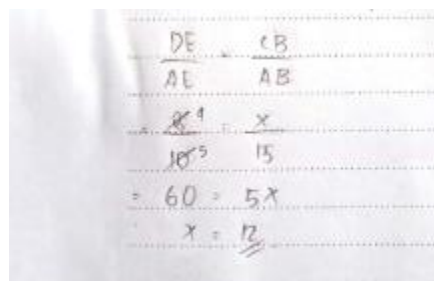 DE/AE = CB/AB
= 8 4/10 5 = x/15
= 60 = 5x
x = 12